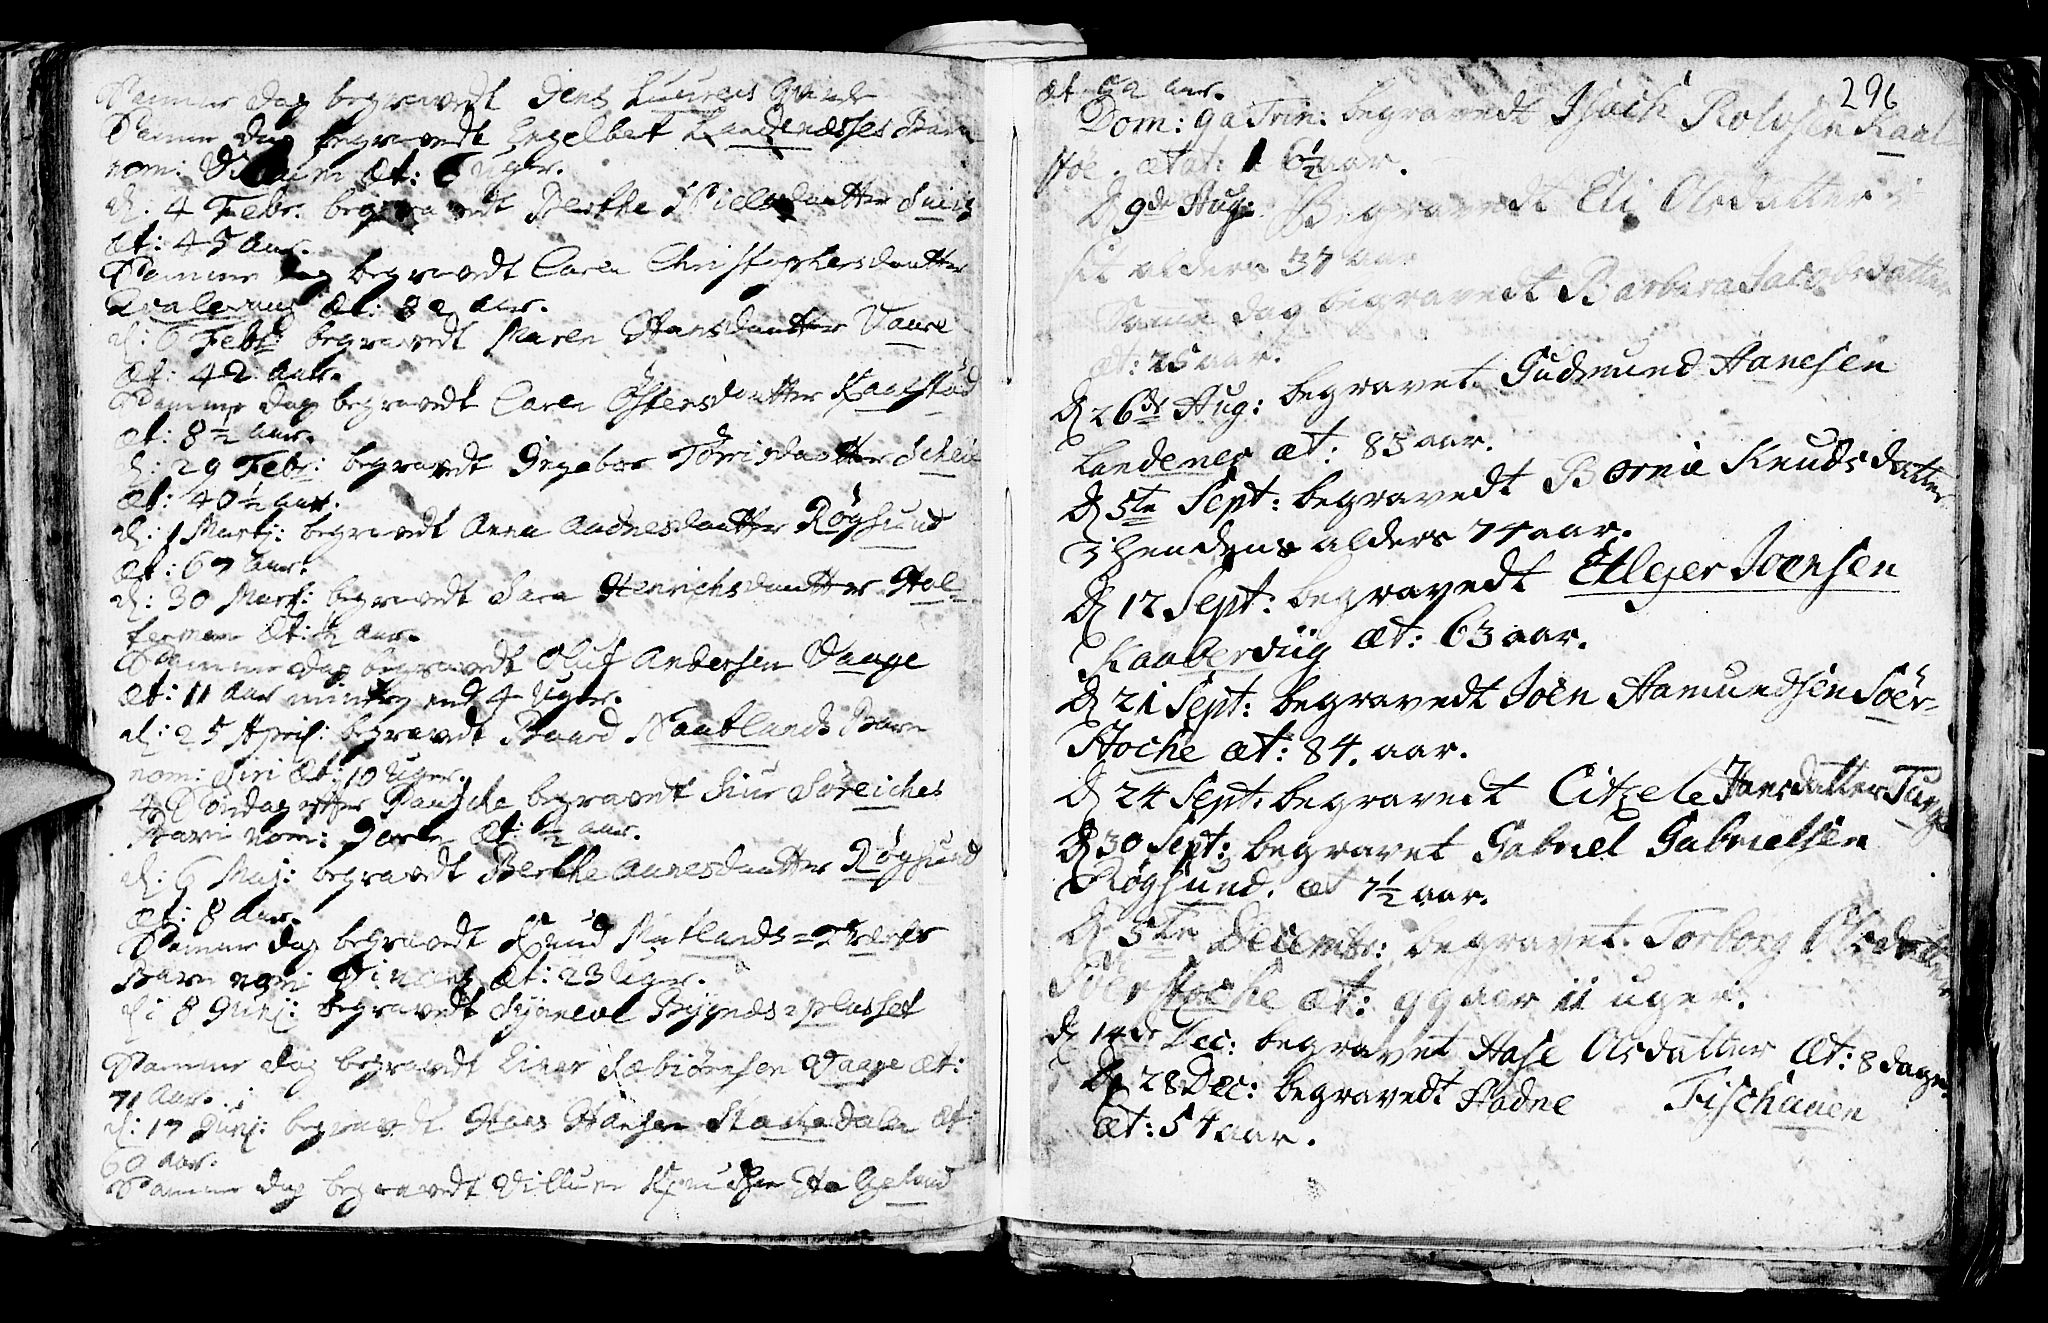 Samme dag begravedt Jens Laurens
Samme dag begravedt Engelbret Landenæsses Barn
nom: æt: 6 Uger.
d: 4 Febr. begravedt Berthe Nielsdaatter
æt: 45 Aar.
Samme dag begravedt Caren Christophersdaatter
Qvalevaag æt: 82 Aar.
d: 6 Febr: begravedt Maren Hansdaatter Vaare
æt: 42 Aar.
Samme dag begravedt Caren Østensdaatter Kaalstad
æt: 8½ Aar.
d: 29 Febr: begravedt Ingebor Tørrisdaatter
æt: 40½ Aar.
d: 1 Martj: begravedt Anna Aadnesdaatter Røgsund
æt: 67 Aar.
d: 30 Mart: begravedt Sara Henrichsdaatter Hol-
æt: ½ Aar.
Samme dag begravedt Oluf Andersen Vaage
æt: 11 Aar mindre end 4 Uger.
d: 25 April: begravedt Baard Nautlands Barn
nom: Siri æt: 10 Uger.
4 Søndag efter Paasche begravet Siur Søreiches
Barn nom: æt: ½ Aar.
d: 6 Maj: begravedt Berthe Aanesdaatter Røgsund
æt: 8 Aar.
Samme dag begravedt Knud Matlands=
Barn nom: æt: 23 Uger.
d: 8 Junj: begravedt Synneve Bygnæs=plasset
Samme dag begravedt Einer Sæbiørnsen Vaage æt:
71 Aar.
d: 17 Junj: begravedt Hans Hansen dalen æt:
60 Aar.
Samme dag begravedt Villum Knudsen Ha Geland
296
æt 52 aar.
Dom: 9a Trin: begravedt Isach Rolvsen Kaal-
støe. ætat: 16½ aar.
D 9de Aug: Begravedt Eli Olsdatter i
sit alders 37 aar
Samme dag begravedt Barbera Jacobsdatter
æt: 25 aar.
D 26de Aug: begravet. Gudmund Hanesen
Landenes æt: 83 aar.
D 5te Sept: begravedt Bornie Knudsdatter
i hendens alders 74 aar.
D 12 Sept: begravedt Etlejer Joensen
Kaaberviig æt: 63 aar.
D 21 Sept: begravedt Joen Hamundsen Søer-
Stoche æt: 84. aar.
D 24 Sept: begravedt Citzele Hansdatter
D 30 Sept: begravet Gabriel Gabrielsen
Røgsund. æt 7½ aar.
D 5te Decembr: begravet. Torborg Olsdatter
Søerstoche æt: 99 aar 11 uger.
D 14de Dec: begravet Hase Olsdatter æt: 8 dage.
D 28 Dec: begravedt Hadne Fischaaen
æt: 54 aar.